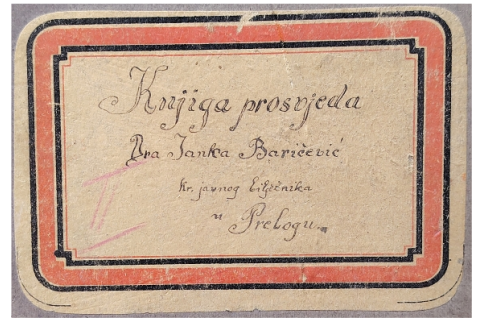 Knjiga prosvjeda
Dra Janka Baričević
kr. javnog bilježnika
u Prelogu
II